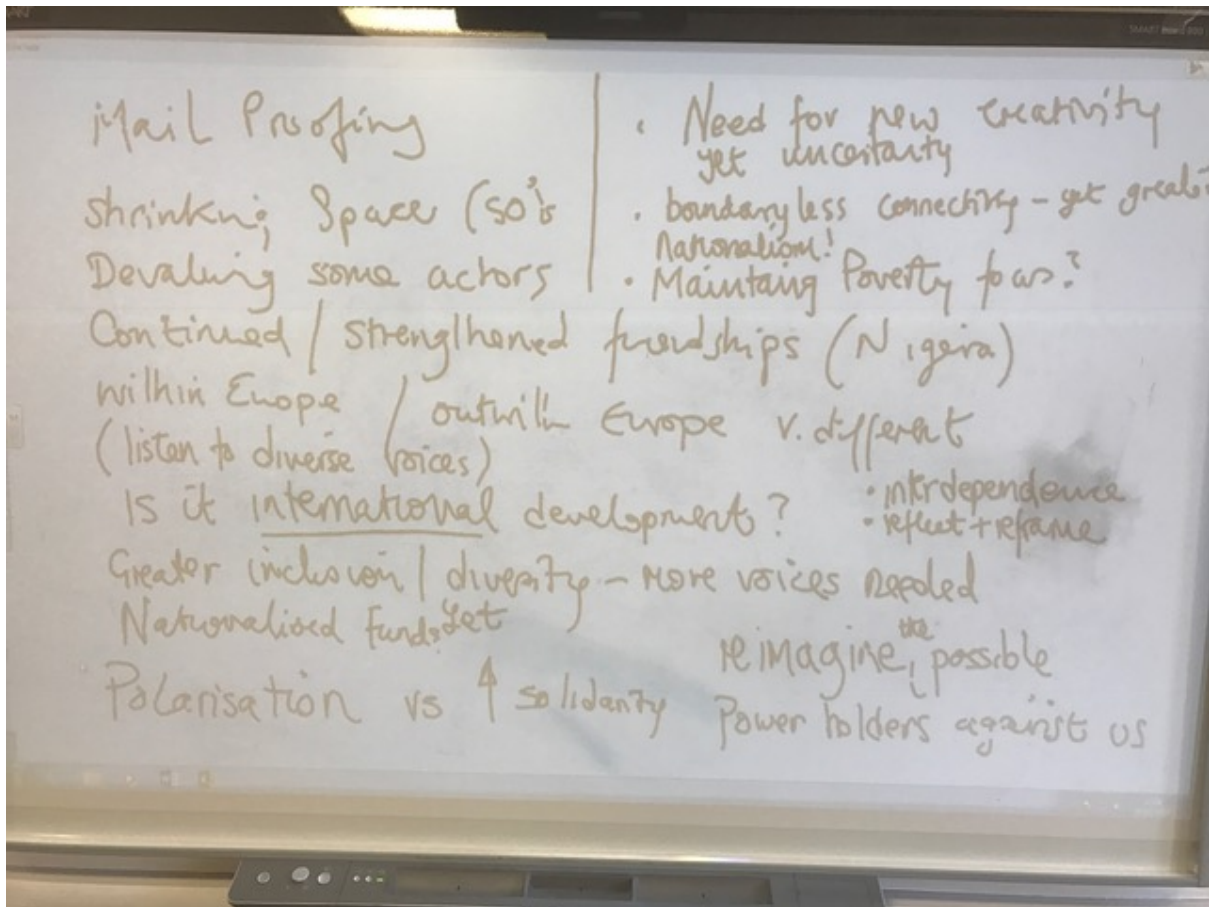 Mail Proofing
shrinking Space (SO's
Devaluing some actors
• Need for new creativity
yet uncertainty
• boundaryless connectivity - yet greater
nationalism!
• Maintaing Poverty focus?
Continued / strengthened friendships (Nigeria)
within Europe / outwith Europe v. different
(listen to diverse voices)
Is it international development?
• interdependence
• reflect + reframe
Greater inclusion / diversity - more voices needed
Nationalised funds yet
Polarisation vs ↑ solidarity
reimagine the possible
Power holders against us
SMART Board 800